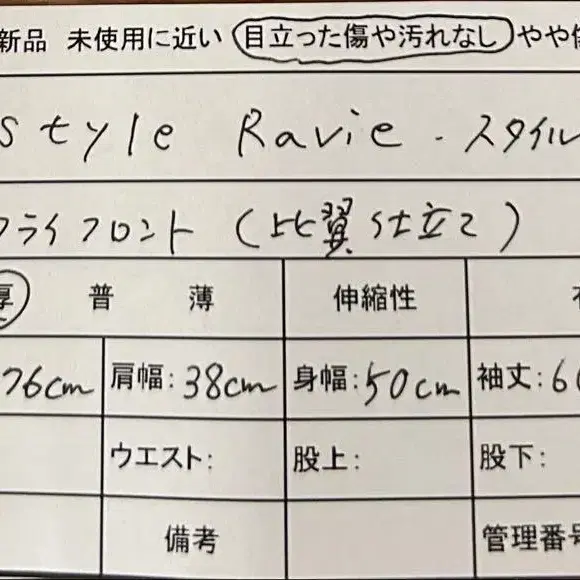 新品 未使用に近い 目立った傷や汚れなし やや
style Ravie . スタイル
フライフロント (比翼仕立て)
厚 普 薄 伸縮性
76cm 肩幅: 38cm 身幅: 50cm 袖丈: 6
ウエスト: 股上: 股下:
備考 管理番号